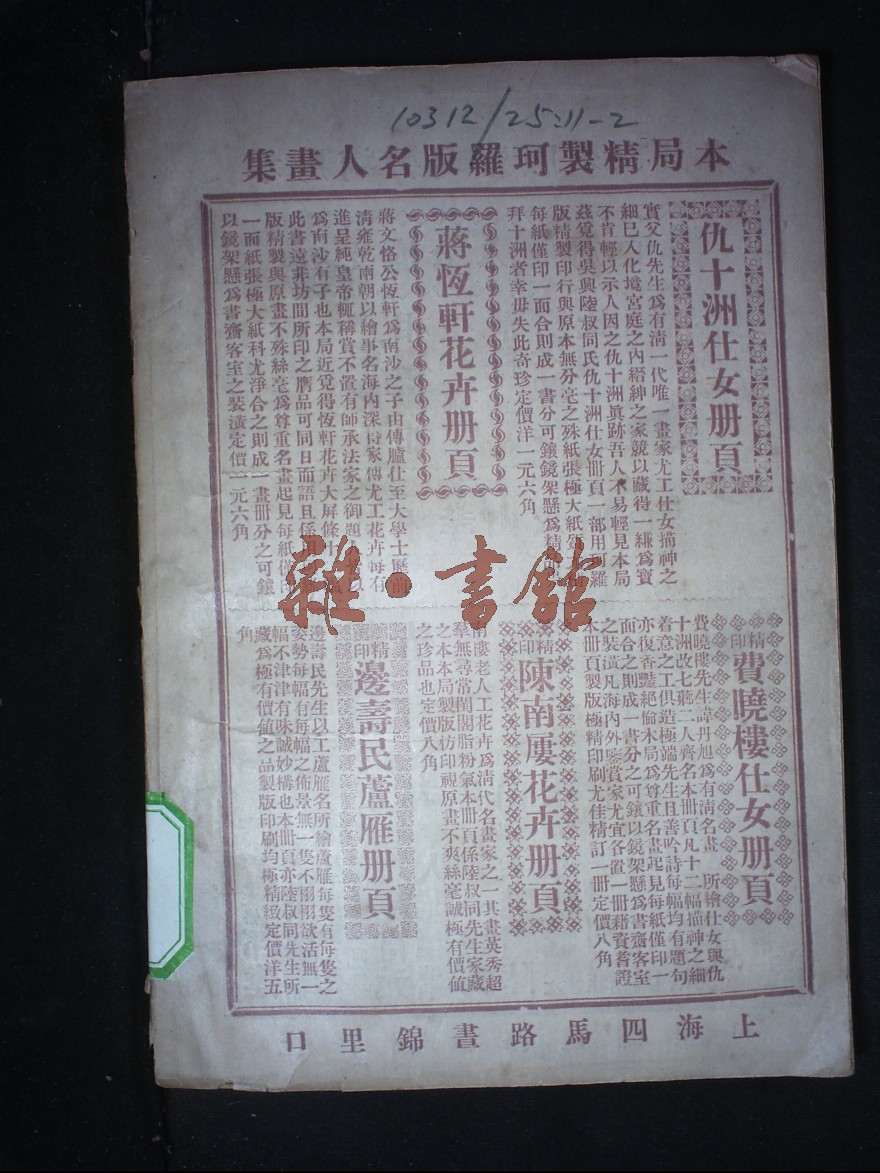 10312/25:11-2
本局精製珂羅版名人畫集
仇十洲仕女册頁
實父仇先生爲有淸一代唯一畫家尤工仕女描神之
細已入化境宮庭之內縉紳之家競以藏得一縑爲寶
不肯輕以示人因之仇十洲眞跡吾人不易輕見本局
茲覓得吳興陸叔同氏仇十洲仕女册頁一部用珂羅
版精製印行與原本無分毫之殊紙張極大紙
每紙僅印一面合則成一書分可鑲鏡架懸爲精
拜十洲者幸毋失此奇珍定價洋一元六角
蔣恆軒花卉册頁
蔣文恪公恆軒爲南沙之子由傳臚仕至大學士歷
淸雍乾兩朝以繪事名海內深得家傳尤工花卉每有
進呈純皇帝輒稱賞不置有師承法家之御題 以
爲南沙有子也本局近覓得恆軒花卉大屏條十
此書遠非坊間所印之贋品可同日而語且係用
版精製與原畫不殊絲毫爲尊重名畫起見每紙僅印
一面紙張極大紙料尤淨合之則成一畫册分之可鑲
以鏡架懸爲書齋客室之裝潢定價一元六角
精印
費曉樓仕女册頁
費曉樓先生諱丹旭爲有淸名畫 所繪仕女與仇
十洲改七薌二人齊名本册頁凡十二幅描神之細
着意之工俱造極端先生且善吟詩每幅均有題句
亦復香豔絕倫本局爲尊重名畫起見每紙僅印一
面合之則成一書分之可鑲以鏡架懸爲書齋客室
之裝潢凡海內外鑒賞家尤宜各置一册藉資考證
本册頁製版極精印刷尤佳精訂一册定價八角
精印
陳南屢花卉册頁
南樓老人工花卉爲淸代名畫家之一其畫英秀超
羣無尋常閨閣脂粉氣本册頁係陸叔同先生家藏
之本本局製版仿印視原畫不爽絲毫誠極有價値
之珍品也定價八角
精印
邊壽民蘆雁册頁
邊壽民先生以工蘆雁名所繪蘆雁每隻有每隻之
姿勢每幅有每幅之佈景無一隻不栩栩欲活無一
幅不津津有味誠妙構也本册頁亦陸叔同先生所
藏爲極有價値之品製版印刷均極精緻定價洋五
角
上海四馬路晝錦里口
雜·書館